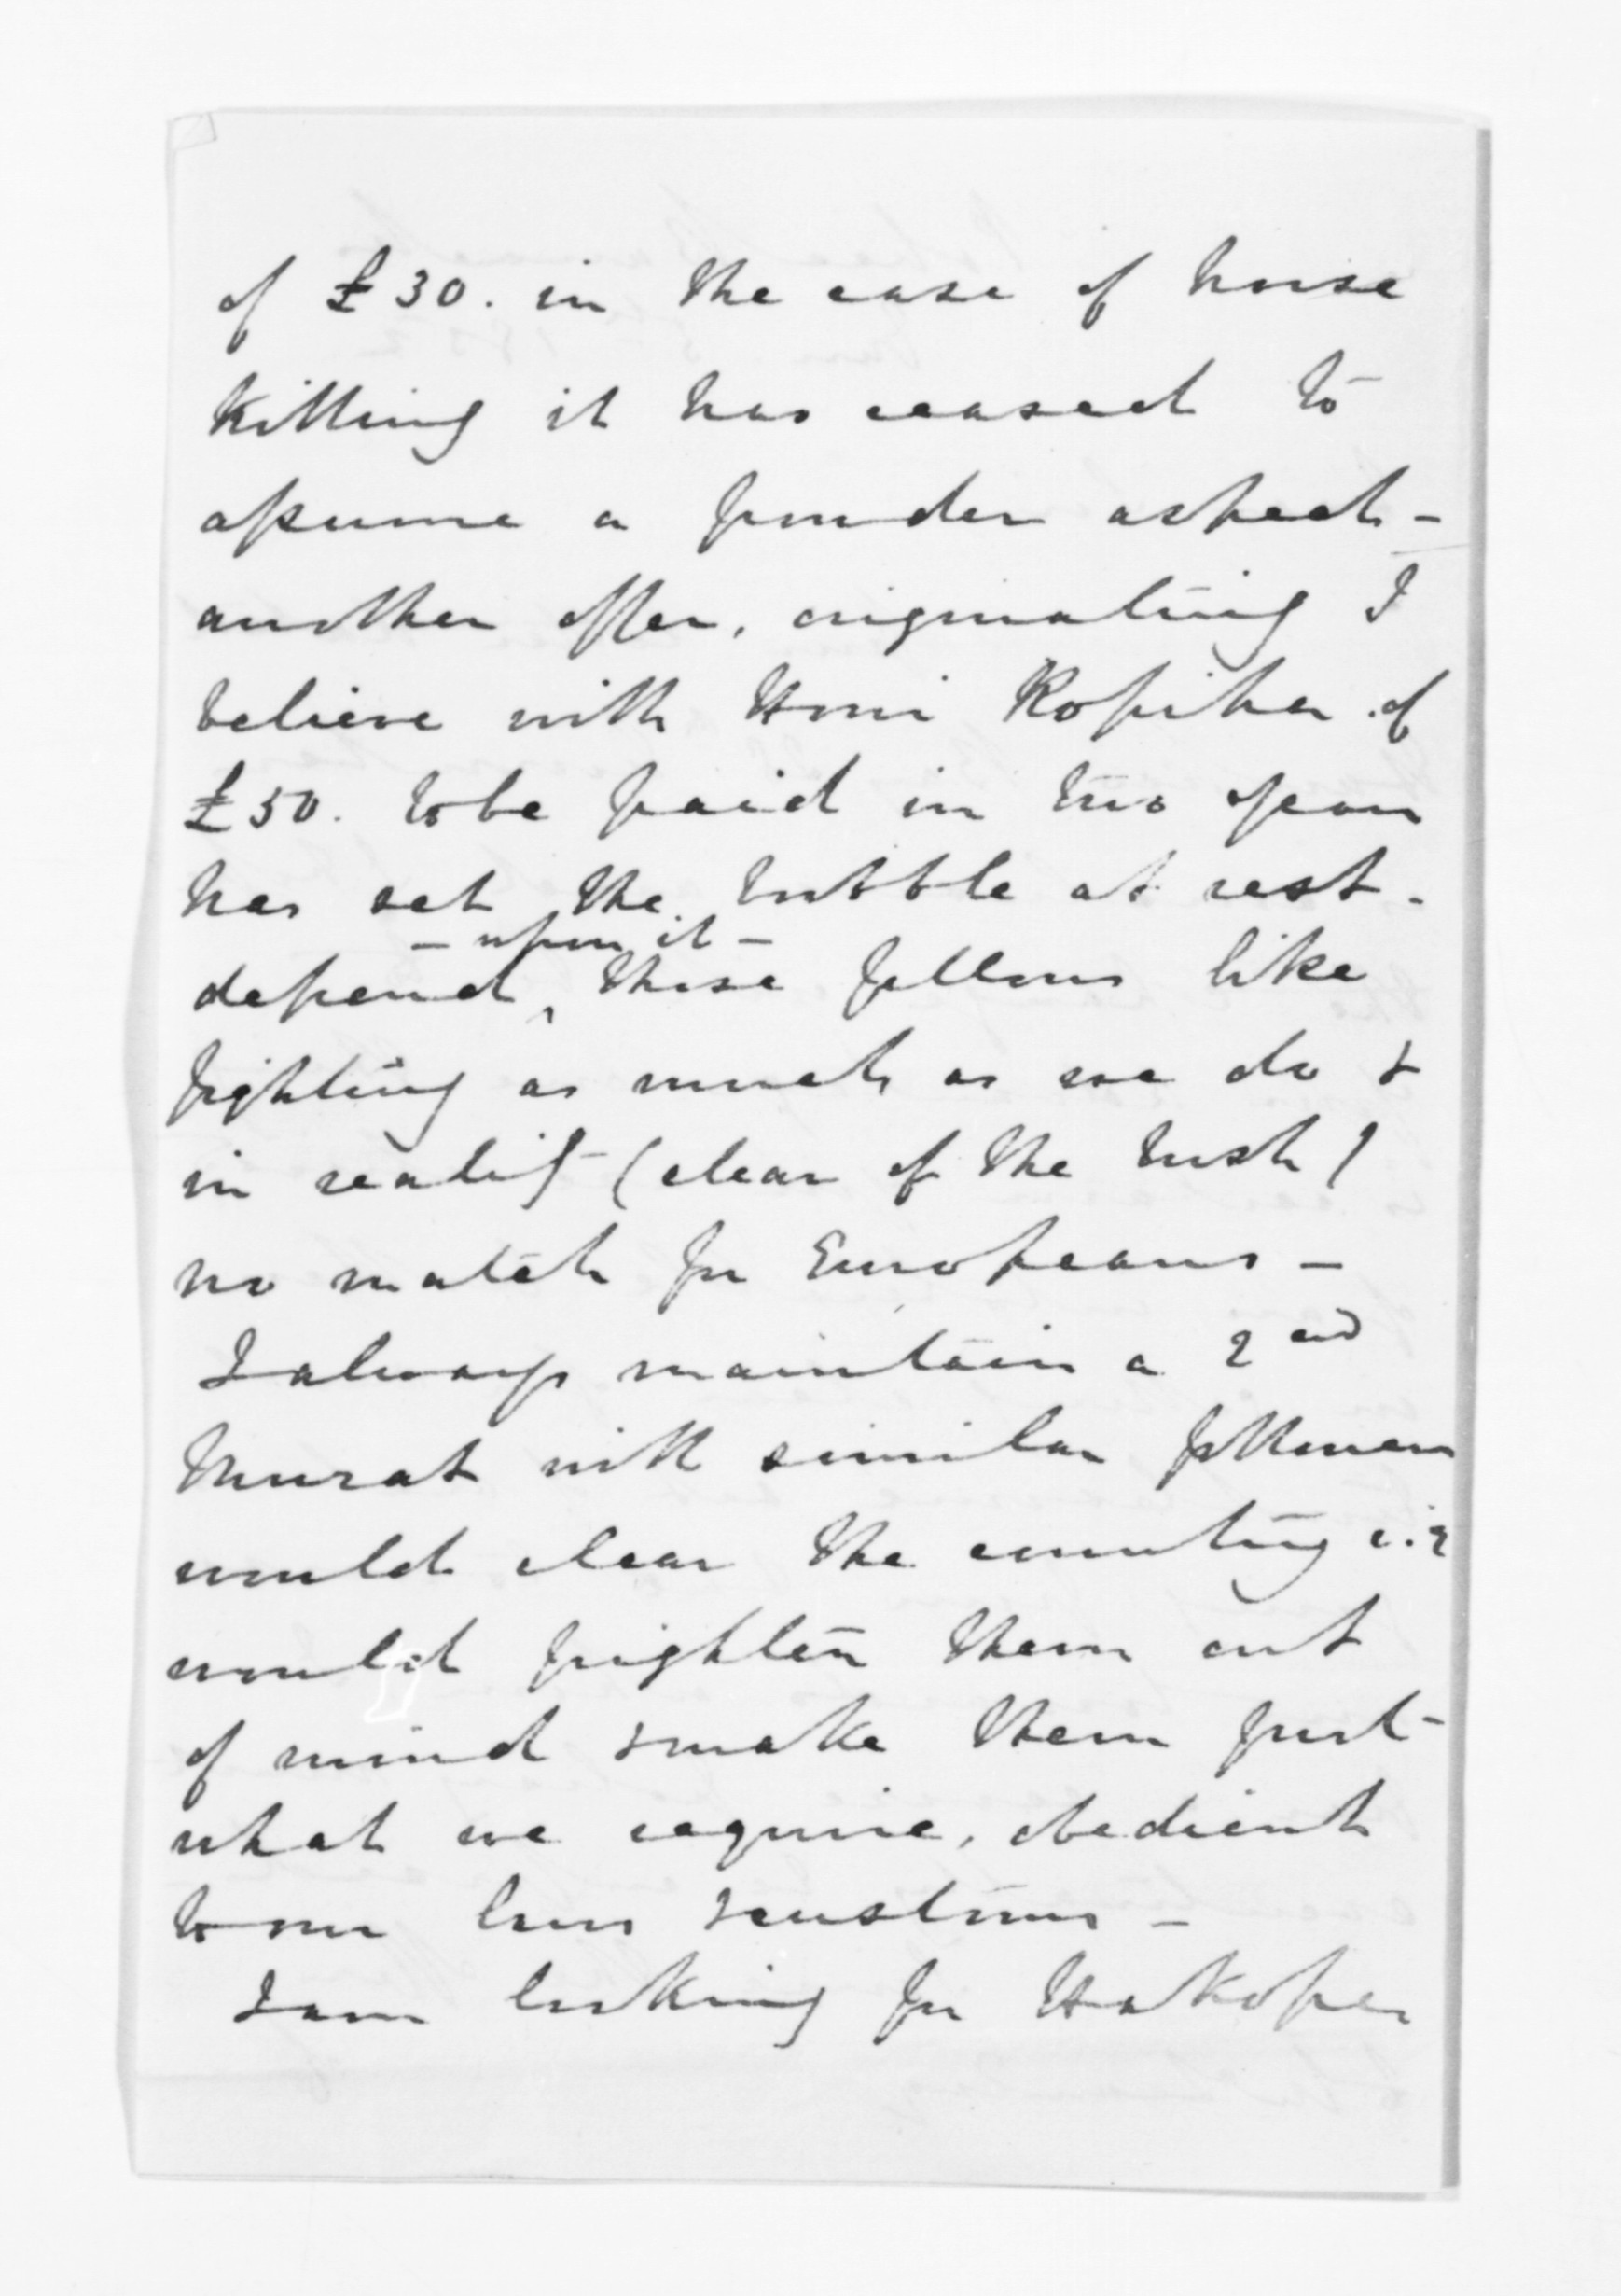 of £30. in the case of horse
killing it has ceased to
assume a powder aspect -
another offer, originating I
believe with Honi Ropiha of
£50. to be paid in two years
has set the bubble at rest.
- upon it -
depend, these fellows like
fighting as much as we do &
in reality (clear of the bush)
no match for Europeans -
I always maintain a 2nd
Murat with similar followers
would clear the country i.e
would frighten them out
of mind & make them just
what we require, obedient
to our laws & customs -
I am looking for